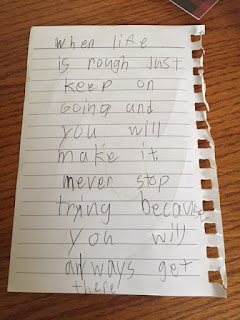 when life
is rough Just
keep on
Going and
you will
make it
never stop
trying because
you will
always get
there